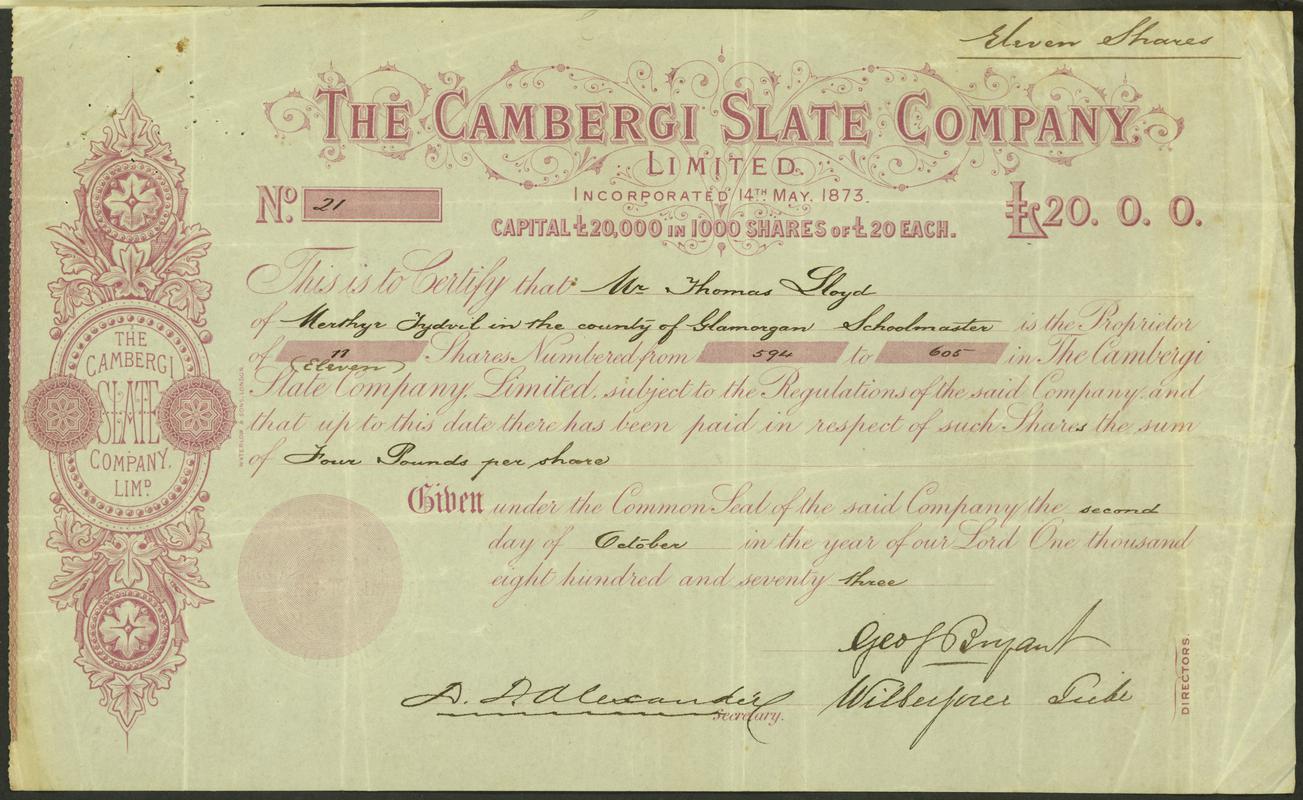 Eleven Shares
THE CAMBERGI SLATE COMPANY,
LIMITED.
INCORPORATED 14TH MAY, 1873.
No. 21
£20. 0. 0.
CAPITAL £20,000 IN 1000 SHARES OF £20 EACH.
This is to Certify that Mr Thomas Lloyd
of Merthyr Tydvil in the county of Glamorgan Schoolmaster is the Proprietor
of 11 Shares Numbered from 594 to 605 in The Cambergi
(Eleven)
Slate Company, Limited, subject to the Regulations of the said Company, and
that up to this date there has been paid in respect of such Shares the sum
of Four Pounds per share
Given under the Common Seal of the said Company the second
day of October in the year of our Lord One thousand
eight hundred and seventy three
Geo J Bryant
D. Alexander Wilberforce
Secretary.
DIRECTORS.
THE
CAMBERGI
SLATE
COMPANY,
LIMD.
WATERLOW & SONS, LONDON.